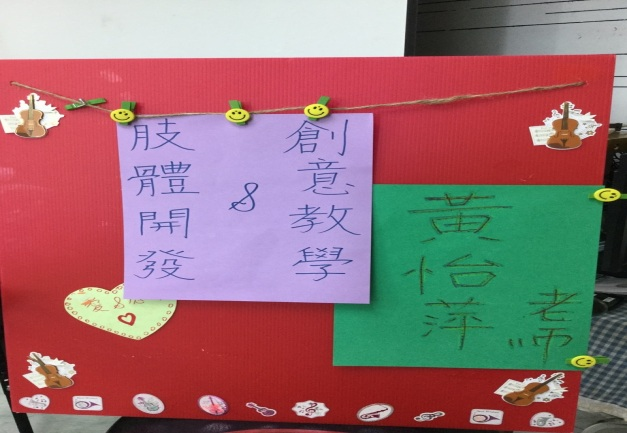 創意教學
&
肢體開發
黃怡萍
老師